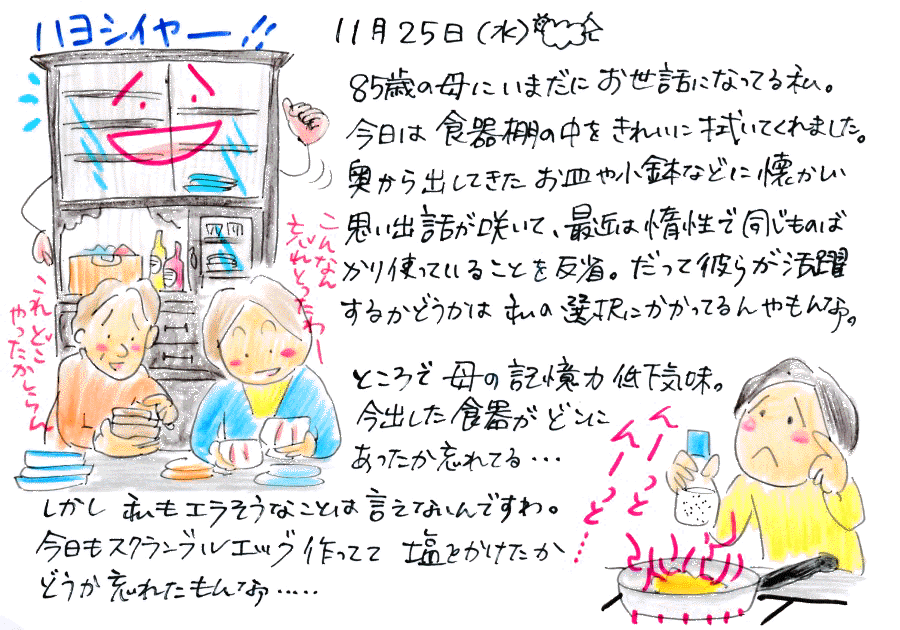 ハヨシイヤー!!
11月25日(水)
85歳の母にいまだにお世話になってる私。
今日は食器棚の中をきれいに拭いてくれました。
奥から出してきたお皿や小鉢などに懐かしい
思い出話が咲いて、最近は惰性で同じものば
かり使っていることを反省。だって彼らが活躍
するかどうかは私の選択にかかってるんやもんなぁ。
こんなん
忘れとったわー
これどこ
やったかしらん
ところで母の記憶力低下気味。
今出した食器がどこに
あったか忘れてる・・・
んーっと
んーっと…
しかし私もエラそうなことは言えないんですわ。
今日もスクランブルエッグ作ってて塩をかけたか
どうか忘れたもんなぁ・・・・・